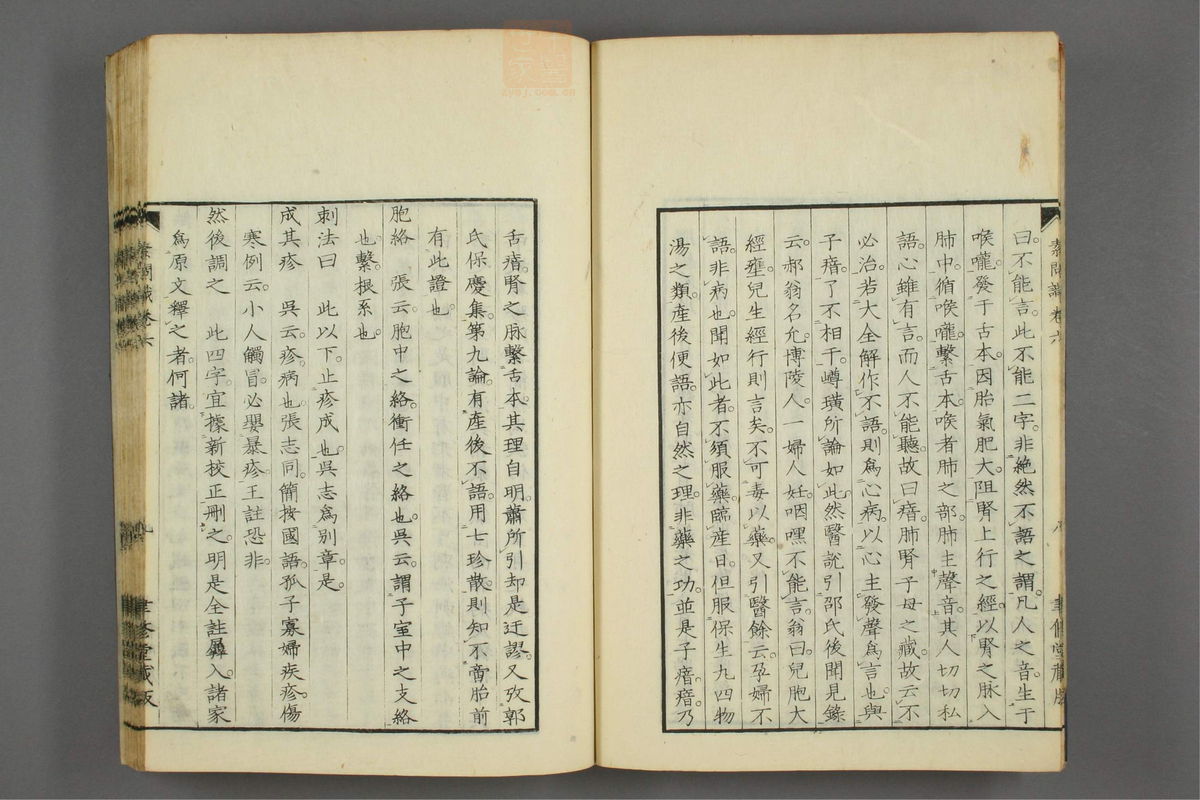 曰。不能言。此不能二字。非絶然不語之謂。凡人之音。生于
喉嚨。發于舌本。因胎氣肥大。阻腎上行之經。以腎之脉入
肺中。循喉嚨。繫舌本。喉者肺之部。肺主聲音。其人切切私
語。心雖有言。而人不能聽。故曰瘖。肺腎子母之藏。故云不
必治。若大全解作不語。則爲心病。以心主發聲爲言也。與
子瘖了不相干。嶟璜所論如此。然醫説引邵氏後聞見録
云。郝翁名允。博陵人。一婦人妊咽嘿不能言。翁曰。兒胞大
經壅。兒生經行則言矣。不可毒以藥。又引醫餘云。孕婦不
語。非病也。聞如此者。不須服藥。臨産日。但服保生九四物
湯之類。産後便語。亦自然之理。非藥之功。並是子瘖。瘖乃
舌瘖。腎之脉繫舌本。其理自明。蕭所引却是迂謬。又攷郭
氏保慶集。第九論。有産後不語。用七珍散。則知不啻胎前
有此證也。
胞絡 張云。胞中之絡。衝任之絡也。吳云。謂子室中之支絡
也。繫。根系也。
刺法曰 此以下。止疹成也。吳志爲別章。是。
成其疹 吳云。疹。病也。張志同。簡按國語。孤子寡婦疾疹。傷
寒例云。小人觸冒。必嬰暴疹。王註恐非。
然後調之 此四字。宜據新校正刪之。明是全註竄入。諸家
爲原文釋之者。何諸。
素問識卷六
八
聿修堂藏版
素問識卷六
九
聿修堂藏版
zyqj.com.cn